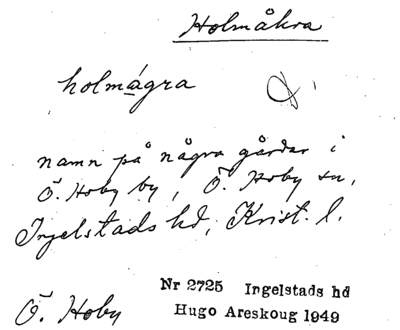 Holmåkra
holmágra
namn på några gårdar i
Ö. Hoby by, Ö. Hoby sn,
Ingelstads hd, Krist. l.
Ö. Hoby
Nr 2725 Ingelstads hd
Hugo Areskoug 1949